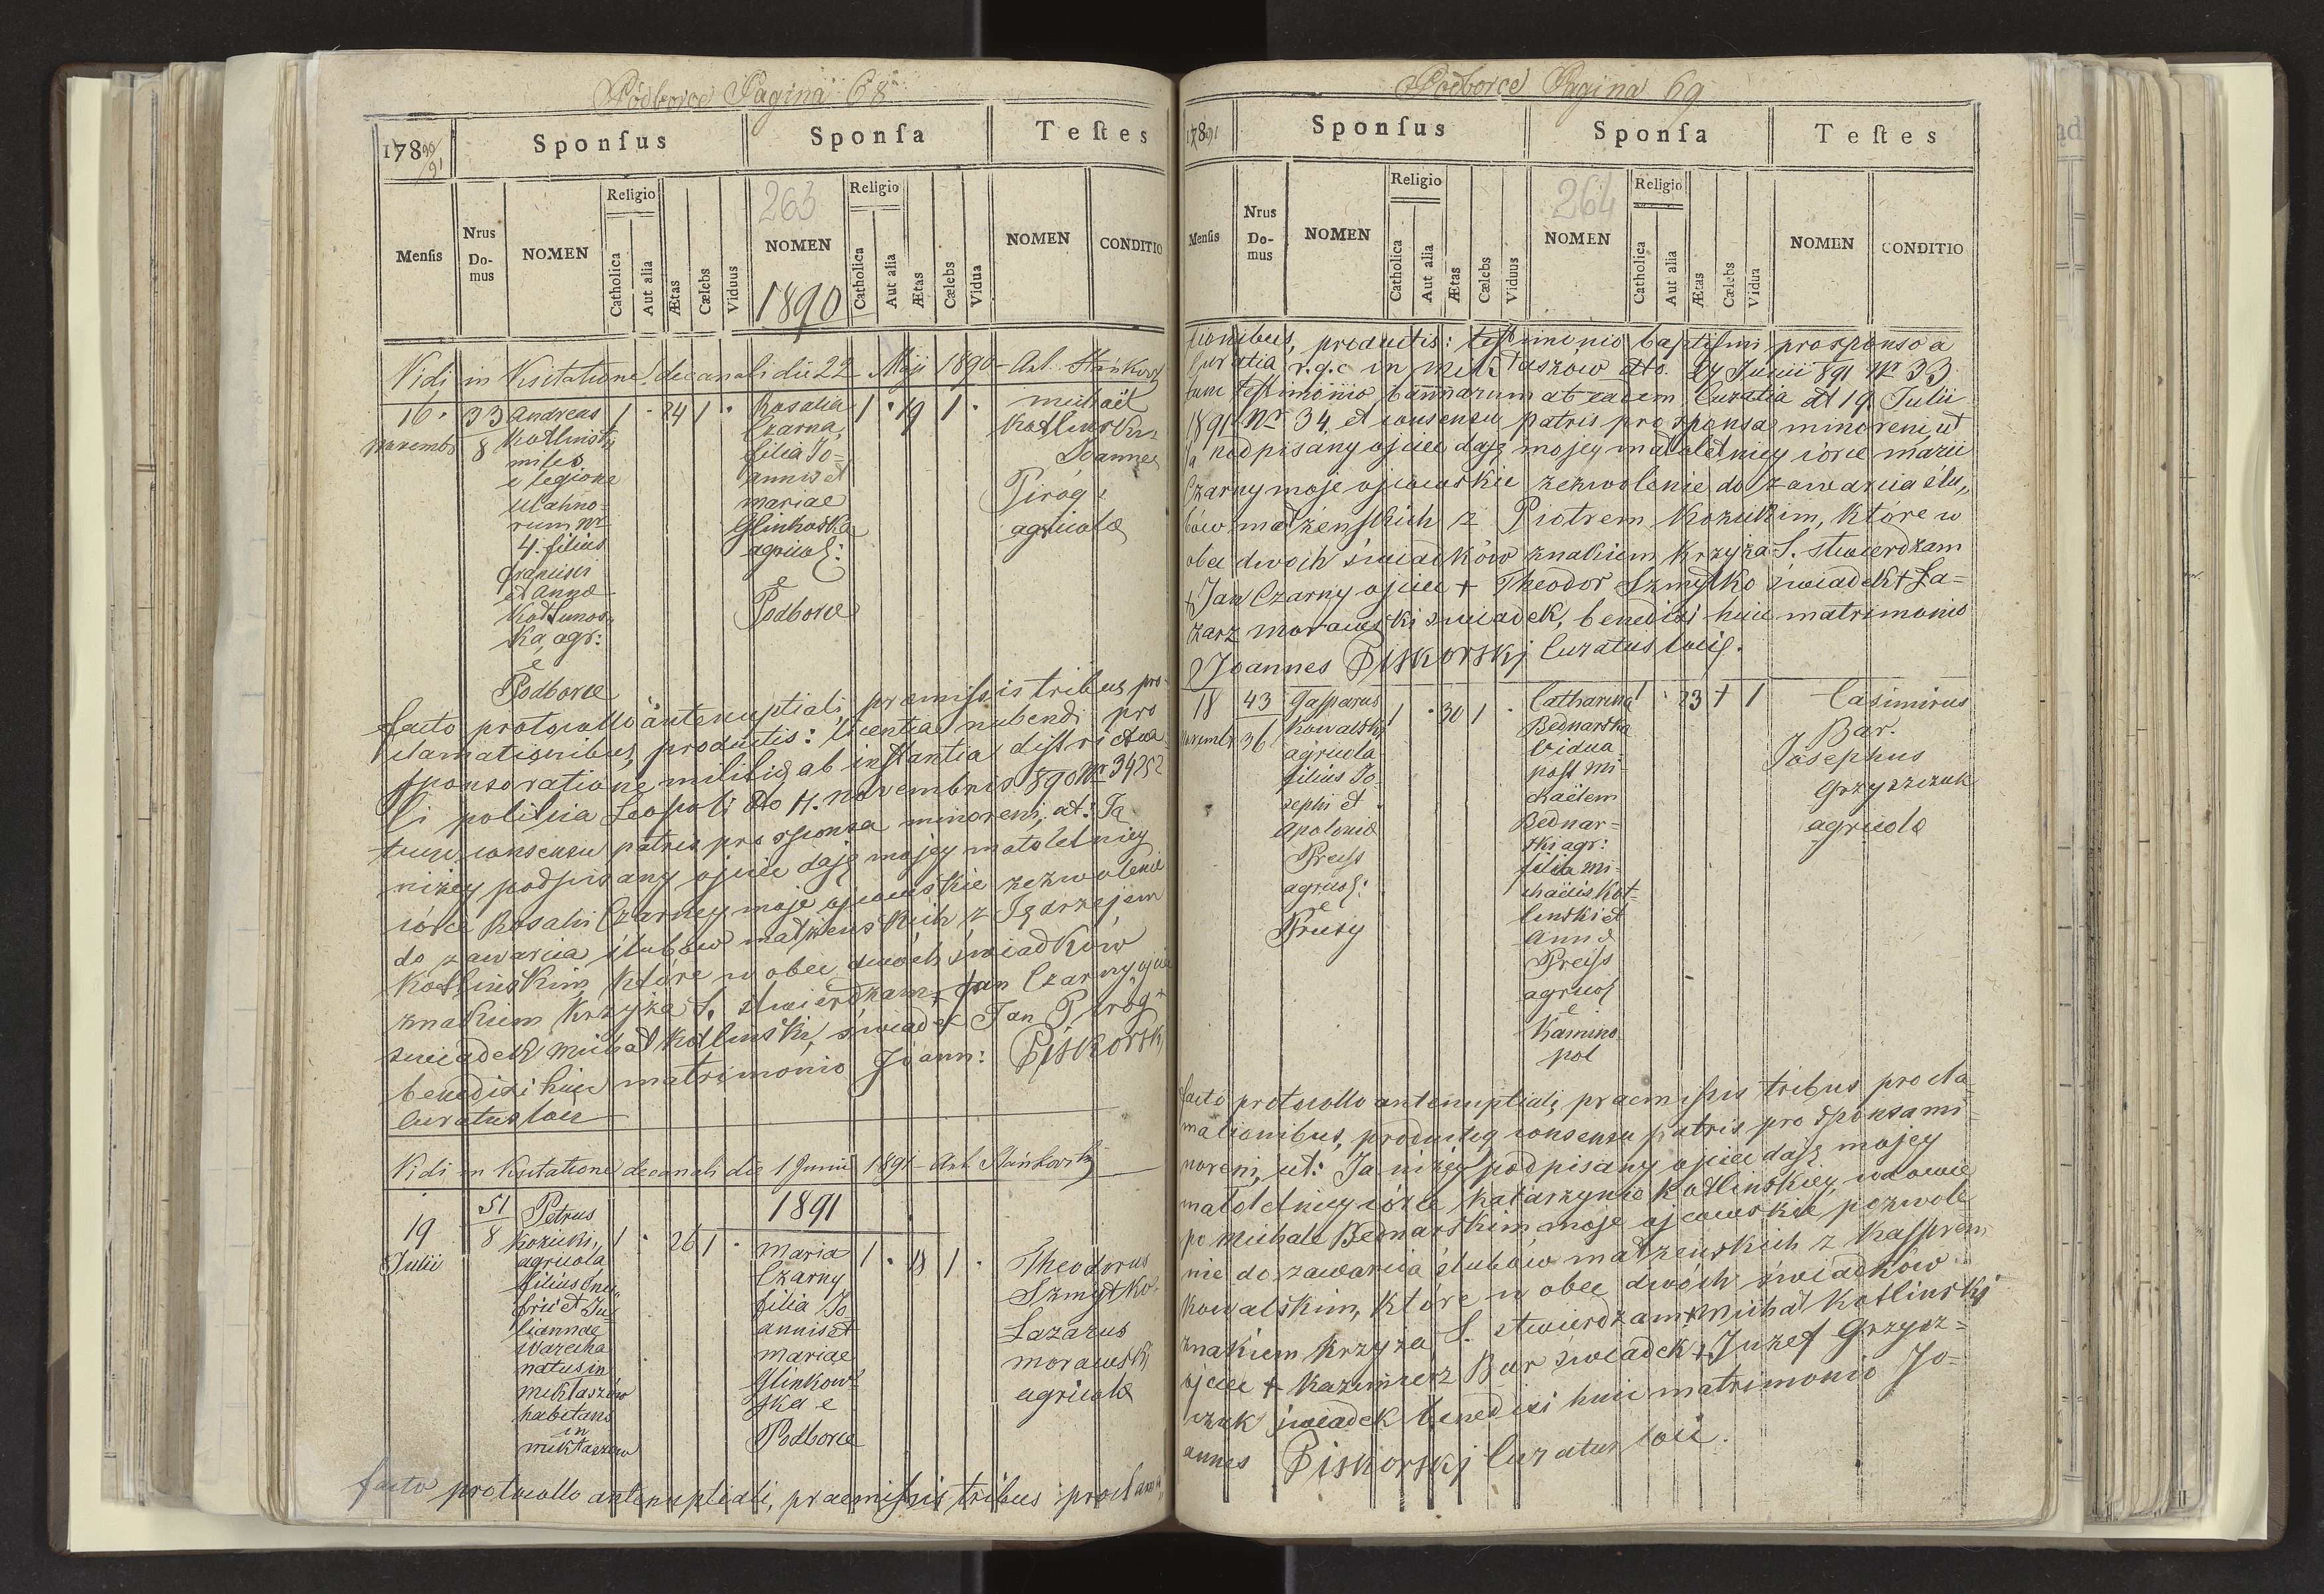 Podborce Pagina 68
178 90/91
Sponſus
Sponſa
Teſtes
Menſis
Nrus Do-mus
NOMEN
Religio
Catholica
Aut alia
Ætas
Cælebs
Viduus
263
NOMEN
1890
Religio
Catholica
Aut alia
Ætas
Cælebs
Vidua
NOMEN
CONDITIO
Vidi in Visitatione decanali die 22 Maji 1890
16.
Novembr
33
8
Andreas
Kotlinski
miles
e legione
Ulahno-
rum Nr
4. filius
Francisci
et Annae
ka, agr:
e
Podborce
1 · 24 1 ·
Rosalia
Czarna,
filia Jo-
annis et
Mariae
Glinkowska
agricol:
e
Podborce
1 · 19 1 ·
Michaël
Kotlinski
Joannes
Pirog
agricolae
facto protocollo antenuptiali, praemissis tribus pro-
clamationibus, productis: licentia nubendi pro
sponso ratione militiae ab instantia
politica Leopoli dto 11. Novembris 890 Nr
tum consensu patris pro sponsa minoreni, ut: Ja
niżey podpisany ojciec daję mojey małoletniey
córce Rosalii Czarney moje ojcowskie zezwolenie
do zawarcia ślubów małżeńskich z Jędrzejem
Kotlińskim, które w obec dwóch świadków
znakiem krzyża S. stwierdzam + Jan Czarny ojciec
świadek Michał Kotliński, świadek Jan Piróg +
benedixi huic matrimonio Joann: Piskorski
Curatus loci
Vidi in Visitatione decanali die 1 Junii 1891
1891
19
Julii
51
8
Petrus
Kozicki,
agricola
filius Onu-
frii et Ju-
liannae
Warecha
natus in
Mikłaszów
habitans
in
Mikłaszów
1 · 26 1 ·
Maria
Czarny
filia Jo
annis et
Mariae
Glinkow-
ska e
Podborce
1 · 18 1 ·
Theodorus
Szmytko
Lazarus
Morawski
agricolae
facto protocollo antenuptiali, praemissis tribus proclama
Podborce Pagina 69
178 91
Sponſus
Sponſa
Teſtes
Menſis
Nrus Do-mus
NOMEN
Religio
Catholica
Aut alia
Ætas
Cælebs
Viduus
264
NOMEN
Religio
Catholica
Aut alia
Ætas
Cælebs
Vidua
NOMEN
CONDITIO
tionibus, productis: testimonio baptismi pro sponso a
Curatia r.g.c in Mikłaszów dto. 24 Junii 891 Nr 33
tum testimonio bannarum ab eadem Curatia dt 19 Julii
1891 Nr 34, et consensu patris pro sponsa minoreni, ut
Ja podpisany ojciec daję mojey małoletniey córce Marii
Czarny moje ojcowskie zezwolenie do zawarcia ślu-
bów małżeńskich z Piotrem Kozickim, które w
obec dwóch świadków znakiem krzyża S. stwierdzam
+ Jan Czarny ojciec + Theodor Szmytko świadek + Ła-
zarz Morawski świadek, benedixi huic matrimonio
Joannes Piskorskj Curatus loci.
18
Novembr
43
36
Gasparus
Kowalski
agricola
filius Jo-
sephi et
Apoloniae
Preiss
agricol:
e
Prusy
1 · 30 1 ·
Catharina
Bednarska
vidua
post Mi-
chaëlem
Bednar-
ski agr:
filia Mi-
chaëlis Kot-
linski et
Annae
Preiss
agricol
e
Kamino
pol
1 · 23 + 1
Casimirus
Bar.
Josephus
Grzyszczuk
agricolae
facto protocollo antenuptiali, praemissis tribus procla-
mationibus, productoq consensu patris pro sponsa mi-
noreni, ut: Ja niżey podpisany ojciec daję mojey
małoletniey córce Katarzynie Kotlińskiey, wdowie
po Michale Bednarskim moje ojcowskie pozwole-
nie do zawarcia ślubów małżeńskich z Kasprem
Kowalskim, które w obec dwóch świadków
znakiem krzyża S. stwierdzam + Michał Kotliński
ojciec + Kazimierz Bar świadek + Juzef Grzysz-
czuk świadek benedixi huic matrimonio Jo-
annes Piskorskj Curatus loci.